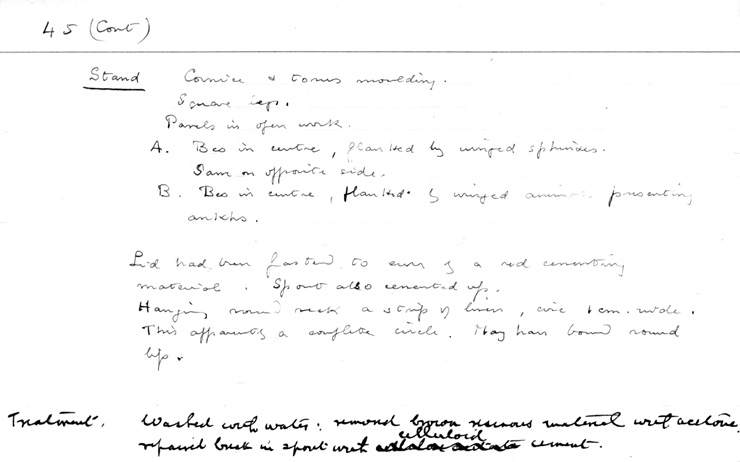 45 (Cont)
Stand Cornice & torus moulding.
Square legs.
Panels in open work.
A. Bes in centre, flanked by winged sphinxes.
Same on opposite side.
B. Bes in centre, flanked by winged animals presenting
ankhs.
Lid had been fastend to ewer by a red cementing
material. Spout also cemented up.
Hanging round neck a strip of linen, circ 1 cm. wide.
This apparently a complete circle. May have bound round
lip.
Treatment. Washed with water: removed brown resinous material with acetone.
repaired break in spout with celluloid cement.